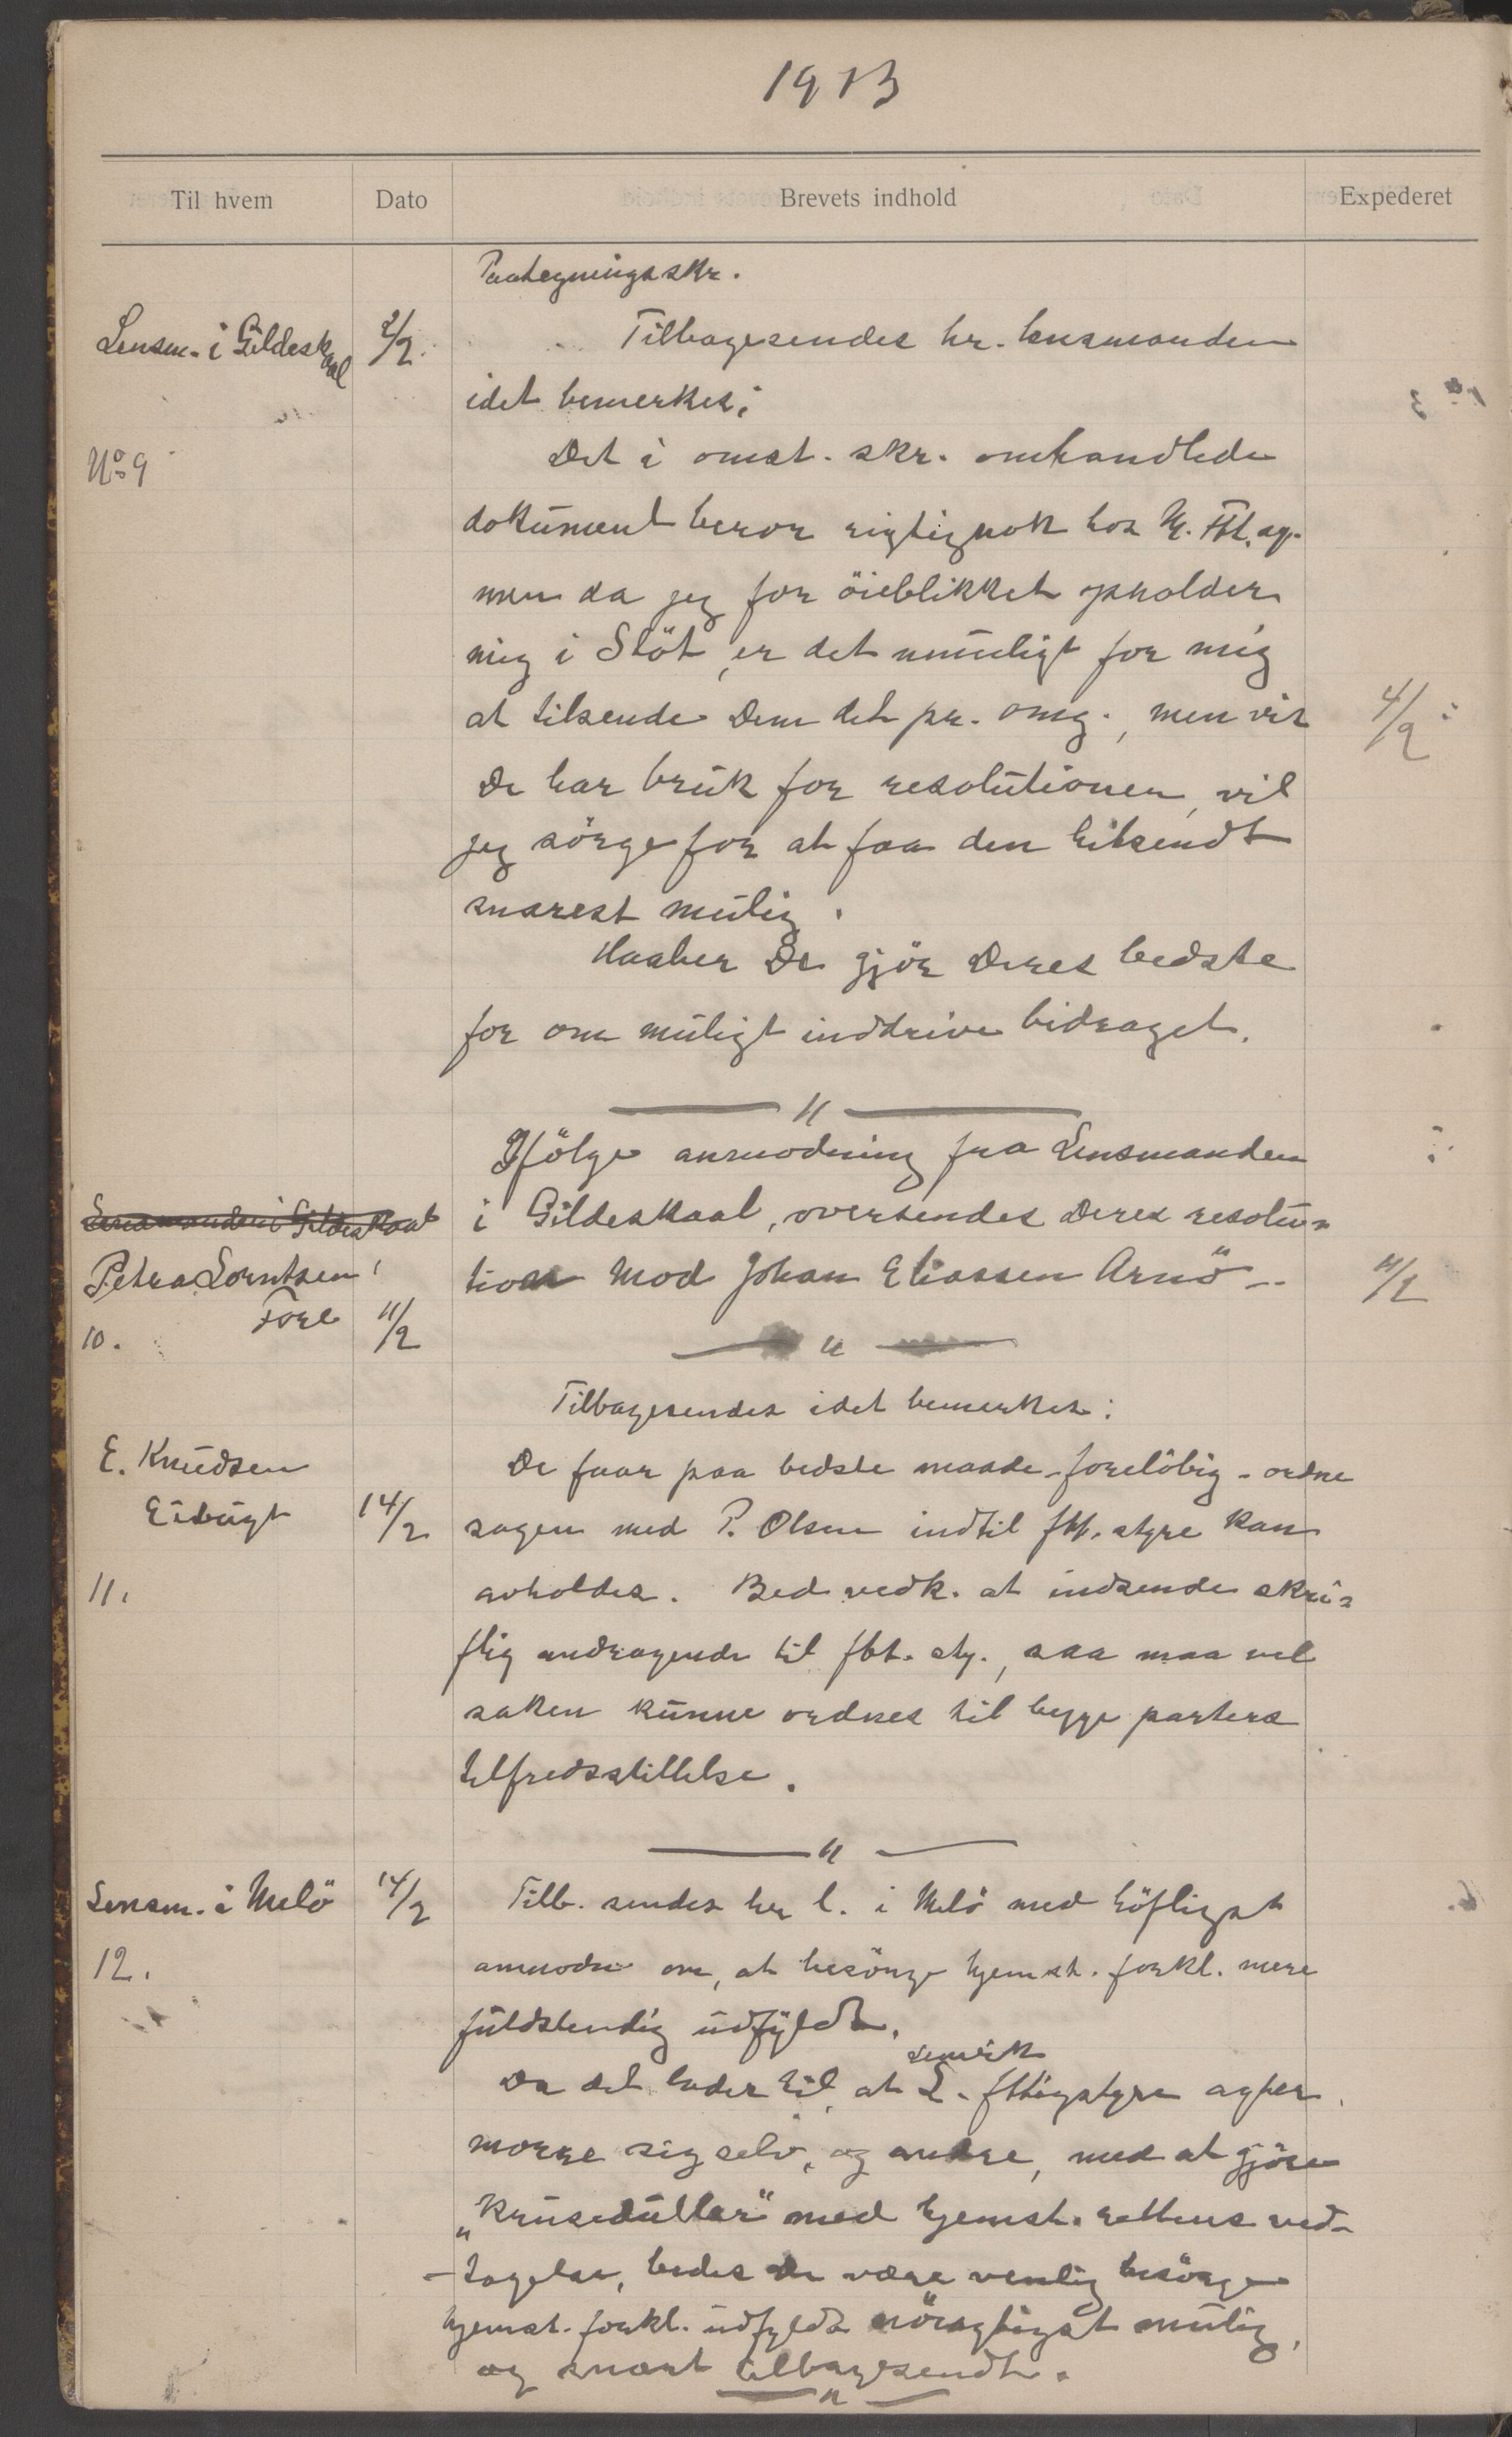 1913
Til hvem Dato Brevets indhold Expederet
Paategningsskr.
Lensm. i Gildeskaal 2/2. Tilbagesendes hr. lensmanden
idet bemerkes:
No 9 Det i omst. skr. omhandlede
dokument beror rigtignok hos M. Fht. sp.
men da jeg for öieblikket opholder
mig i Stöt, er det umuligt for mig
at tilsende Dem det pr. omg., men vis 4/2
De har bruk for resolutionen, vil
jeg sörge for at faa den hitsendt
snarest mulig.
Haaber De gjör Deres bedste
for om muligt inddrive bidraget.
— " —
Ifölge anmodning fra Lensmanden
Lensmanden i Gildeskaal i Gildeskaal, oversendes Deres resolu=
Petra Lorntsen tion mod Johan Eliassen Arnö — 11/2
Fore 11/2
10.
— " —
Tilbagesendes idet bemerkes:
E. Knudsen De faar paa bedste maade - forelöbig - ordne
Eidbugt 14/2 sagen med P. Olsen indtil fht. styre kan
11. avholdes. Bed vedk. at indsende skri=
ftlig andragende til fht. sty., saa maa vel
saken kunne ordnes til begge parters
tilfredsstillelse.
— " —
Lensm. i Melö 14/2 Tilb. sendes hr l. i Melö med höfligst
12. anmodn om, at besörge hjemst. forkl. mere
fuldstendig udfyldt.
Lenvik
Da det lader til, at L. fttigstyre agter
morre sig selv, og andre, med at gjöre
„Krusedüller" med hjemst. rettens ved-
-tagelse, bedes De være venlig besörge
hjemst. forkl. udfyldt nöiagtigst mulig,
og snart tilbagesendt.
— " —